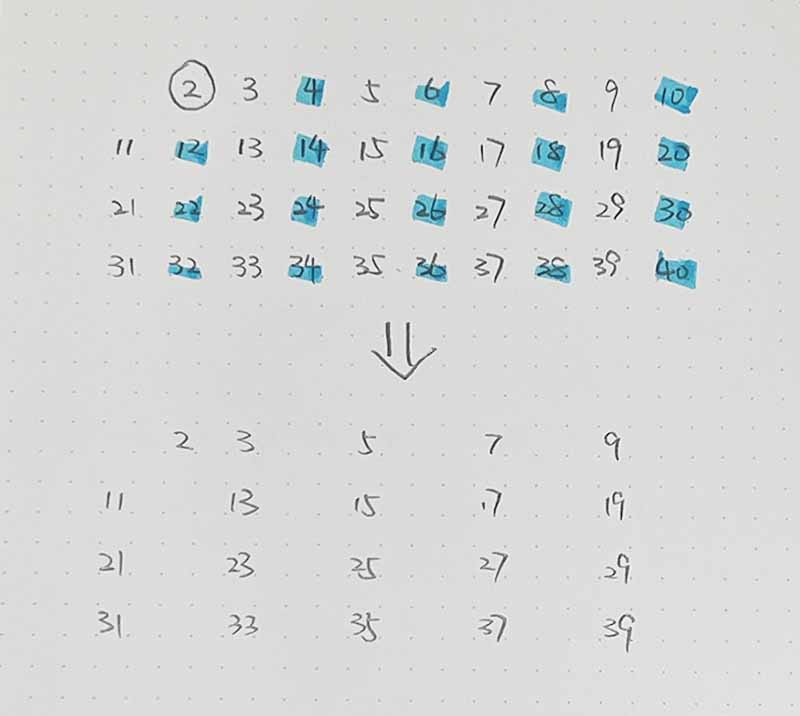 2 3 4 5 6 7 8 9 10
11 12 13 14 15 16 17 18 19 20
21 22 23 24 25 26 27 28 29 30
31 32 33 34 35 36 37 38 39 40
2 3 5 7 9
11 13 15 17 19
21 23 25 27 29
31 33 35 37 39